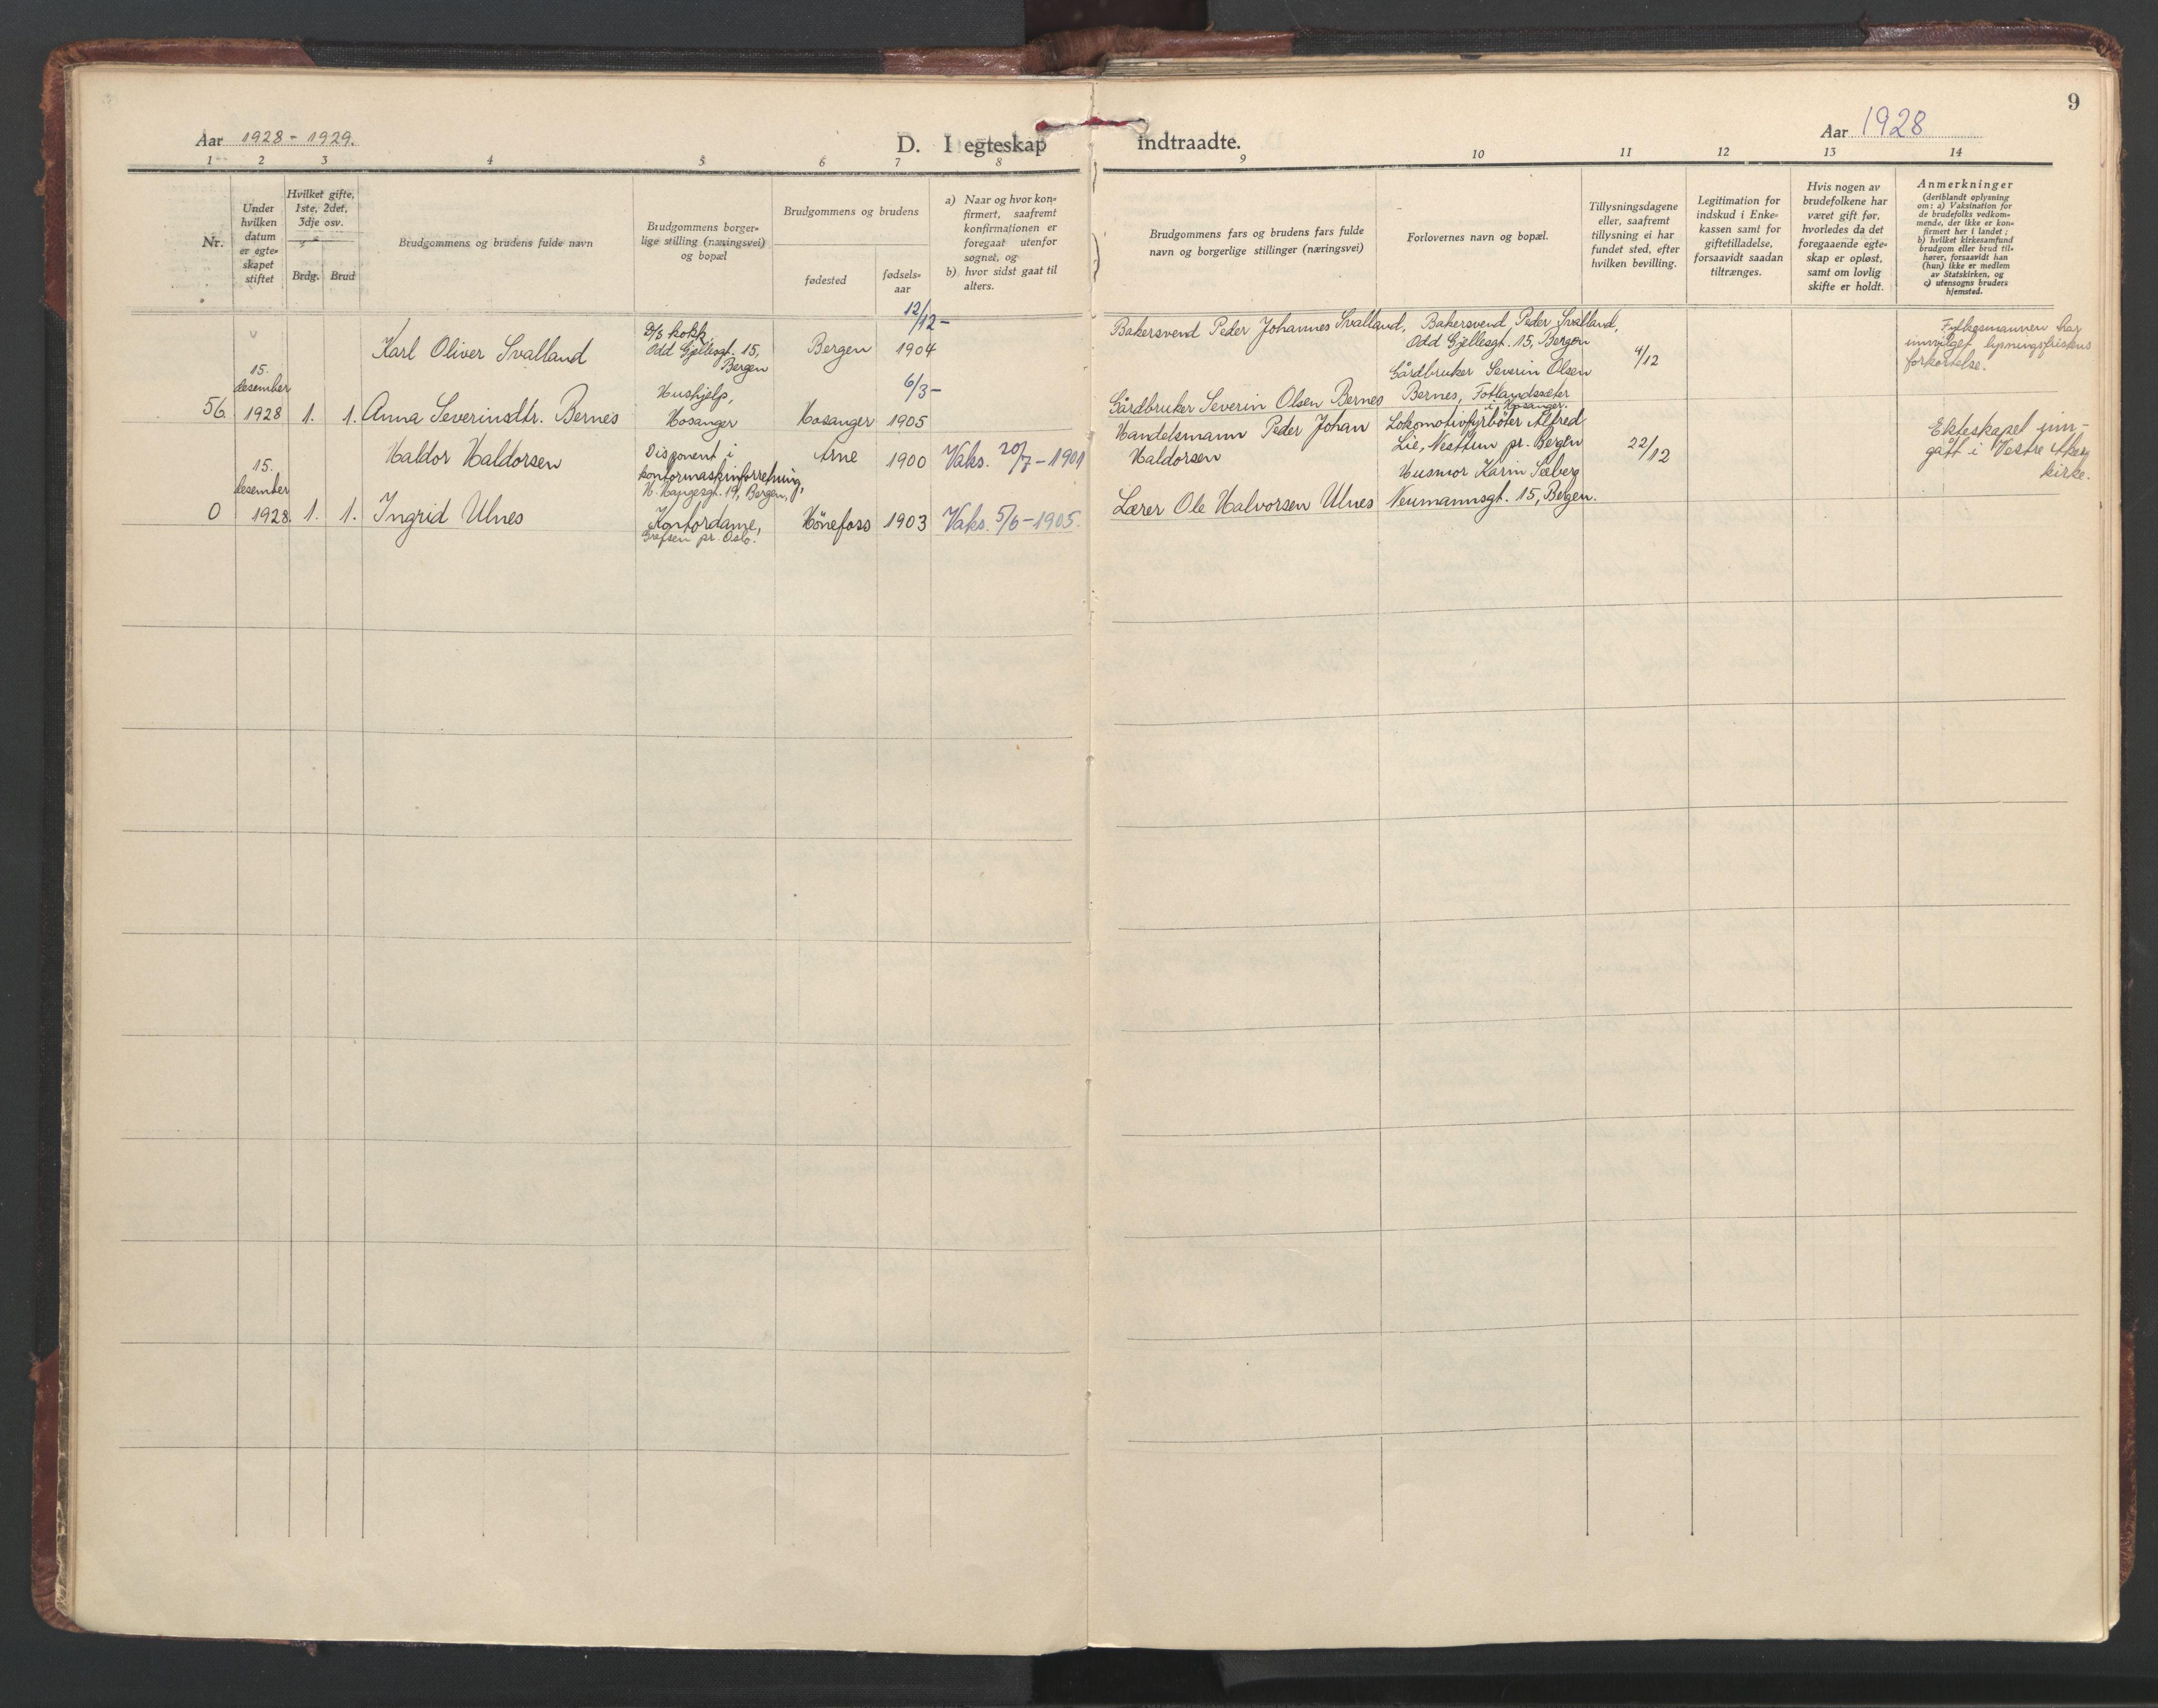 9
Aar 1928 - 1929.
D. I egteskap indtraadte.
Aar 1928
1 2 3 4 5 6 7 8 9 10 11 12 13 14
Nr.
Under
hvilken
datum
er egte-
skapet
stiftet
Hvilket gifte,
1ste, 2det,
3dje osv.
Brdg. Brud
Brudgommens og brudens fulde navn
Brudgommens borger-
lige stilling (næringsvei)
og bopæl
Brudgommens og brudens
fødested
fødsels-
aar
a) Naar og hvor kon-
firmert, saafremt
konfirmationen er
foregaat utenfor
sognet, og
b) hvor sidst gaat til
alters.
Brudgommens fars og brudens fars fulde
navn og borgerlige stillinger (næringsvei)
Forlovernes navn og bopæl.
Tillysningsdagene
eller, saafremt
tillysning ei har
fundet sted, efter
hvilken bevilling.
Legitimation for
indskud i Enke-
kassen samt for
giftetilladelse,
forsaavidt saadan
tiltrænges.
Hvis nogen av
brudefolkene har
været gift før,
hvorledes da det
foregaaende egte-
skap er opløst,
samt om lovlig
skifte er holdt.
Anmerkninger
(deriblandt oplysning
om: a) Vaksination for
de brudefolks vedkom-
mende, der ikke er kon-
firmert her i landet;
b) hvilket kirkesamfund
brudgom eller brud til-
hører, forsaavidt han
(hun) ikke er medlem
av Statskirken, og
c) utensogns bruders
hjemsted.
56.
15.
desember
1928
1. 1.
Karl Oliver Svalland
D/s kokk,
Odd Gjellesgt. 15,
Bergen
Bergen
12/12-
1904
Bakersvend Peder Johannes Svalland,
Bakersvend Peder Svalland,
Odd Gjellesgt. 15, Bergen
4/12
Fylkesmannen har
innvilget lysningsfristens
forkortelse.
Anna Severinsdtr. Bernes
Hushjelp,
Hosanger
Hosanger
6/3-
1905
Gårdbruker Severin Olsen Bernes
Gårdbruker Severin Olsen
Bernes, Fotlandssæter
i Hosanger.
0
15.
desember
1928.
1. 1.
Haldor Haldorsen
Disponent i
kontormaskinforretning,
H. Haugesgt. 19, Bergen,
Arne
1900
Vaks. 20/7-1901
Handelsmann Peder Johan
Haldorsen
Lokomotivfyrbøter Alfred
Lie, Nesttun pr. Bergen
22/12
Ekteskapet inn-
gått i Vestre Aker
kirke.
Ingrid Ulnes
Kontordame,
Grefsen pr. Oslo.
Hønefoss
1903
Vaks. 5/6-1905.
Lærer Ole Halvorsen Ulnes
Husmor Karin Seeberg
Neumannsgt. 15, Bergen.